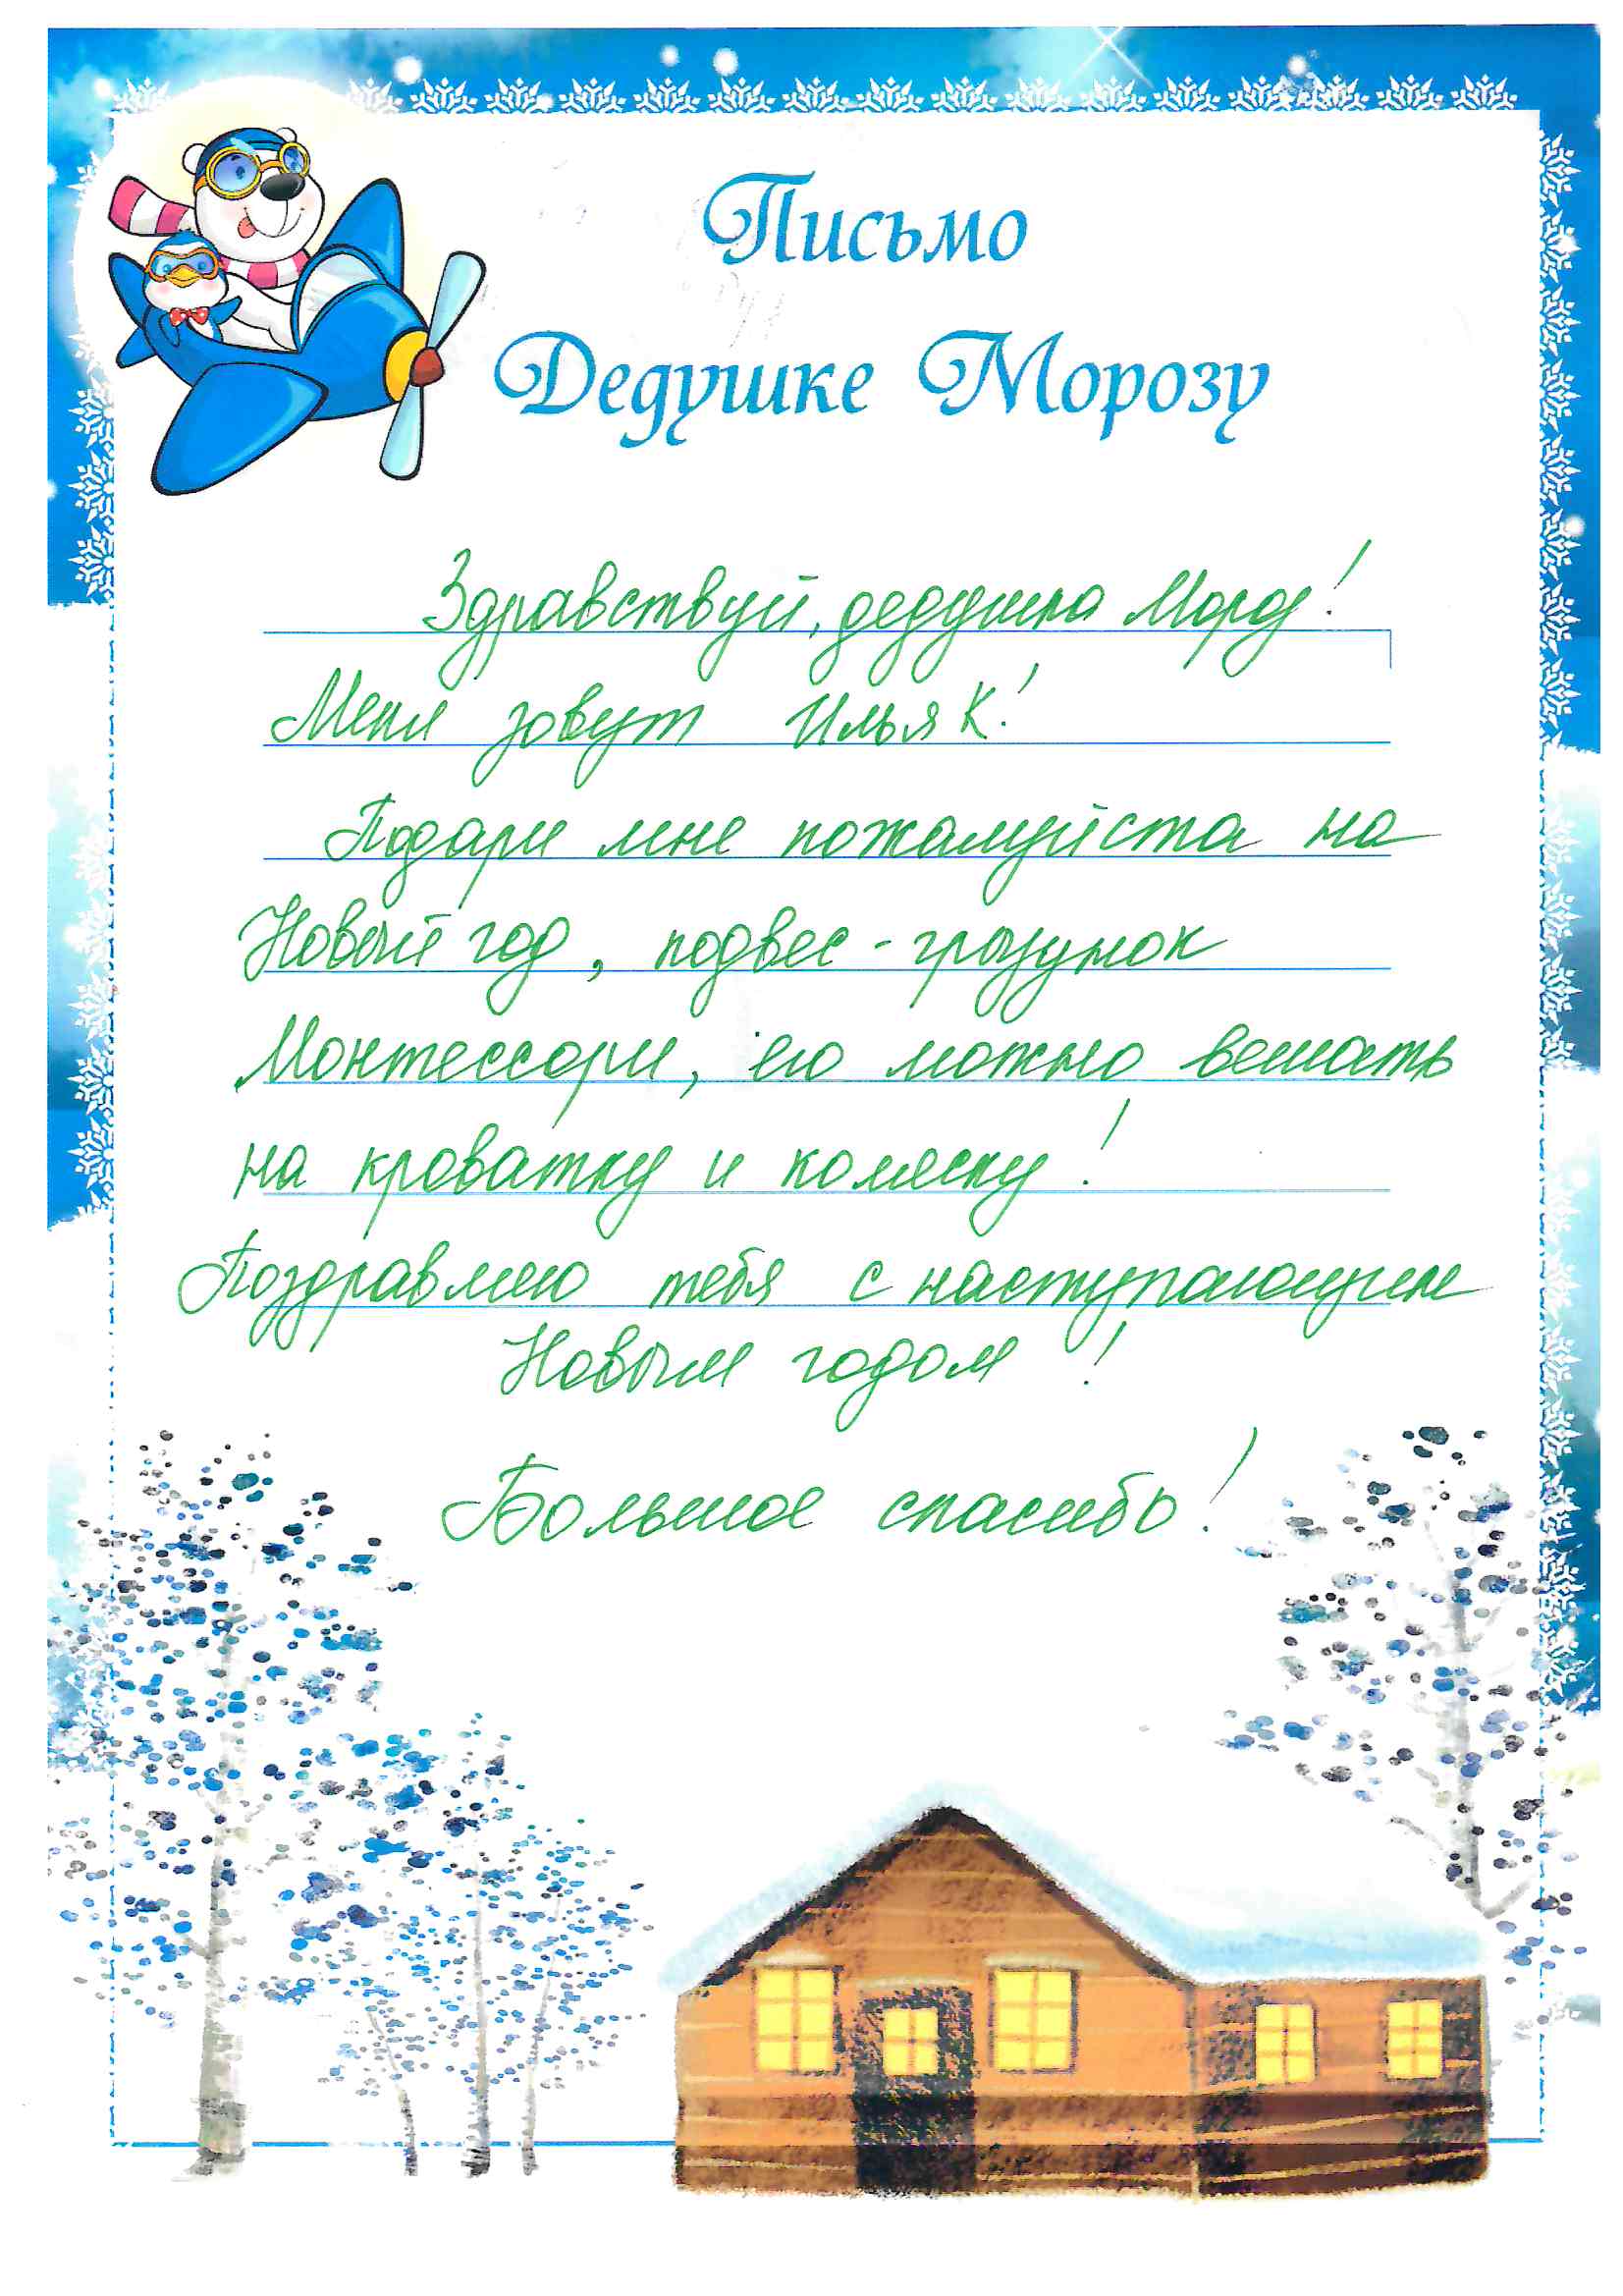 Письмо
Дедушке Морозу
Здравствуй, дедушка Мороз!
Меня зовут Илья К!
Подари мне пожалуйста на
Новый год, подвес-грызунок
Монтессори, его можно вешать
на кроватку и коляску!
Поздравляю тебя с наступающим
Новым годом!
Большое спасибо!